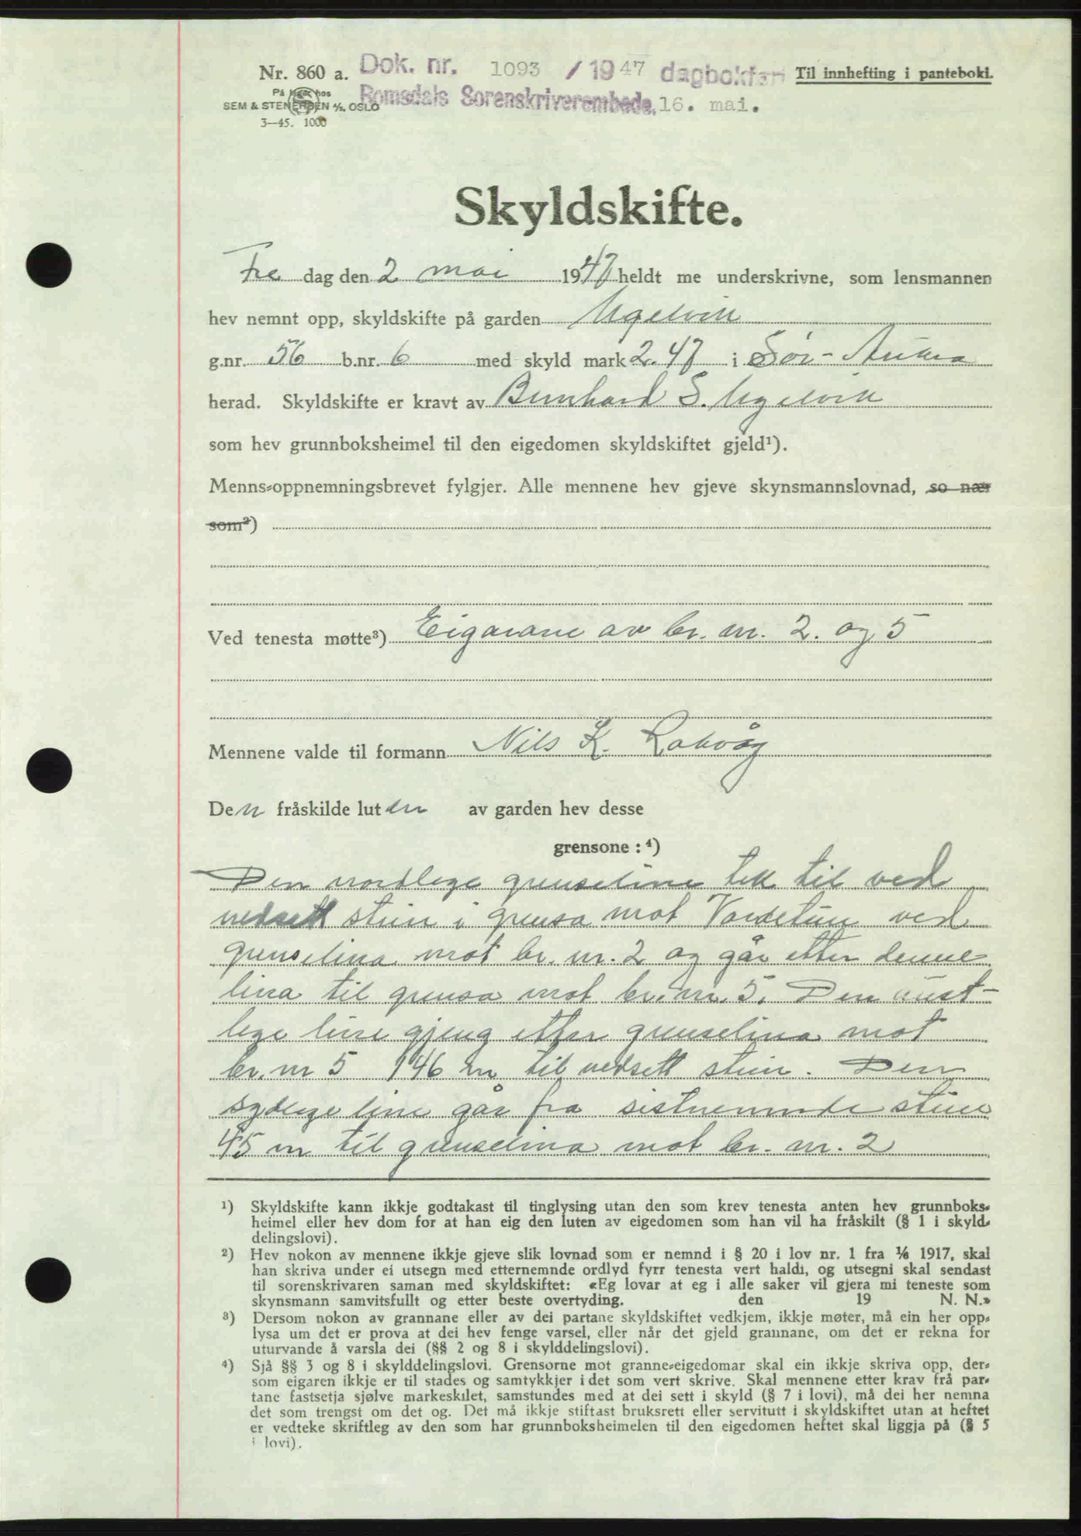 Nr. 860 a. Dok. nr. 1093 / 1947 dagbokført Til innhefting i panteboki.
På lager hos
SEM & STENERSEN A/S, OSLO Romsdals Sorenskriverembede, 16. mai.
3—45. 1000
Skyldskifte.
Fre dag den 2 mai 1947 heldt me underskrivne, som lensmannen
hev nemnt opp, skyldskifte på garden Ugelvik
g.nr. 56 b.nr. 6 med skyld mark 2.47 i Sør-Aukra
herad. Skyldskifte er kravt av Bernhard S. Ugelvik
som hev grunnboksheimel til den eigedomen skyldskiftet gjeld¹).
Menns-oppnemningsbrevet fylgjer. Alle mennene hev gjeve skynsmannslovnad, so nær
som²)
Ved tenesta møtte³) Eigarane av br. nr. 2. og 5
Mennene valde til formann Nils K. Rakvåg
Den fråskilde luten av garden hev desse
grensone : ⁴)
Den nordlege grenselina tek til ved
nedsett stein i grensa mot Vardetun ved
grenselina mot br. nr. 2 og går etter denne
lina til grensa mot br. nr. 5. Den aust-
lege line gjeng etter grenselina mot
br. nr 5 146 m til nedsett stein. Den
sydlege line går fra sistnemnde stein
45 m til grenselina mot br. nr. 2
¹) Skyldskifte kann ikkje godtakast til tinglysing utan den som krev tenesta anten hev grunnboks-
heimel eller hev dom for at han eig den luten av eigedomen som han vil ha fråskilt (§ 1 i skyld-
delingslovi).
²) Hev nokon av mennene ikkje gjeve slik lovnad som er nemnd i § 20 i lov nr. 1 fra 1/6 1917, skal
han skriva under ei utsegn med etternemnde ordlyd fyrr tenesta vert haldi, og utsegni skal sendast
til sorenskrivaren saman med skyldskiftet: «Eg lovar at eg i alle saker vil gjera mi teneste som
skynsmann samvitsfullt og etter beste overtyding. den 19 N. N.»
³) Dersom nokon av grannane eller av dei partane skyldskiftet vedkjem, ikkje møter, må ein her opp-
lysa um det er prova at dei hev fenge varsel, eller når det gjeld grannane, om det er rekna for
uturvande å varsla dei (§§ 2 og 8 i skylddelingslovi).
⁴) Sjå §§ 3 og 8 i skylddelingslovi. Grensorne mot granne-eigedomar skal ein ikkje skriva opp, der-
som eigaren ikkje er til stades og samtykkjer i det som vert skrive. Skal mennene etter krav frå par-
tane fastsetja sjølve markeskilet, samstundes med at dei sett i skyld (§ 7 i lovi), må dei her nemna
det som trengst om det og. Det må ikkje stiftast bruksrett eller servitutt i skyldskiftet utan at heftet
er vedteke skriftleg av den som har grunnboksheimelen til den eigedomen heftet skal liggja på (§ 5
i lovi).